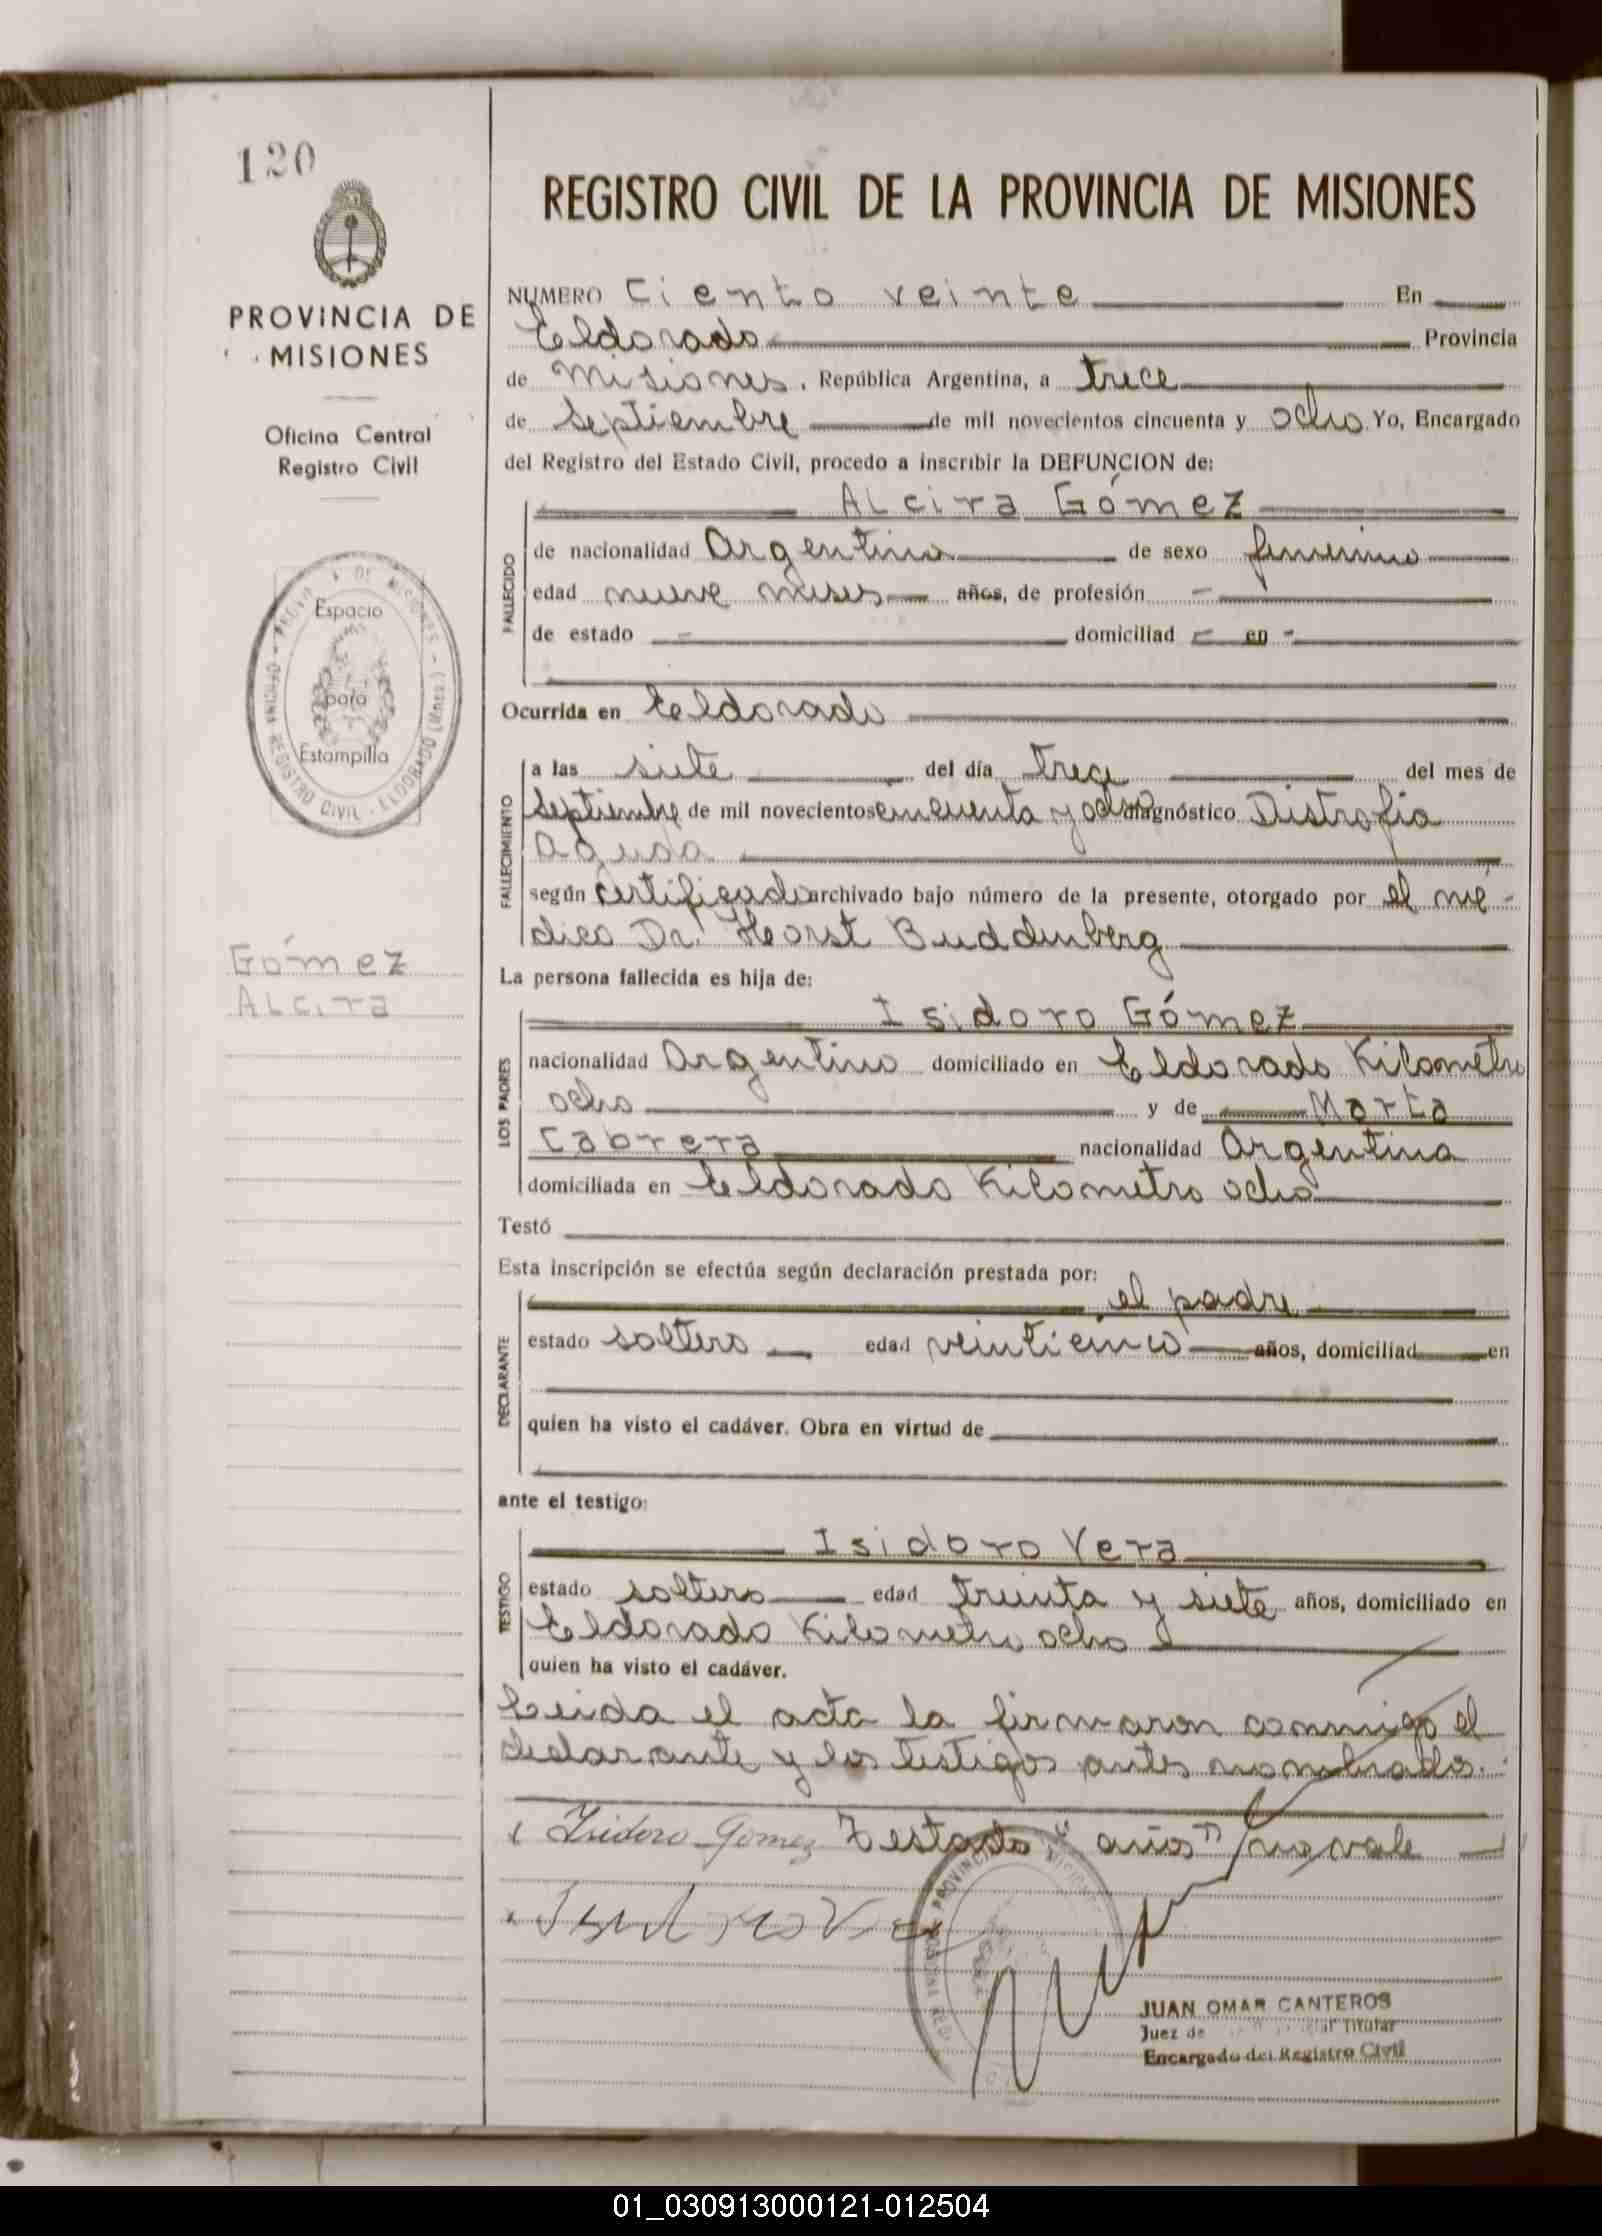 120
PROVINCIA DE
MISIONES
Oficina Central
Registro Civil
Espacio
para
Estampilla
OFICINA REGISTRO CIVIL - ELDORADO (Mnes.)
Gómez
Alcira
REGISTRO CIVIL DE LA PROVINCIA DE MISIONES
NUMERO Ciento veinte En
Eldorado Provincia
de Misiones, República Argentina, a trece
de Septiembre de mil novecientos cincuenta y ocho Yo, Encargado
del Registro del Estado Civil, procedo a inscribir la DEFUNCION de:
FALLECIDO
Alcira Gómez
de nacionalidad Argentina de sexo femenino
edad nueve meses años, de profesión -
de estado - domiciliad - en -
Ocurrida en Eldorado
FALLECIMIENTO
a las siete del día trece del mes de
Septiembre de mil novecientos cincuenta y ocho diagnóstico Distrofia
Aguda
según certificado archivado bajo número de la presente, otorgado por el mé-
dico Dr. Horst Buddenberg
La persona fallecida es hija de:
LOS PADRES
Isidoro Gómez
nacionalidad Argentino domiciliado en Eldorado Kilometro
ocho y de Marta
Cabrera nacionalidad Argentina
domiciliada en Eldorado Kilometro ocho
Testó
Esta inscripción se efectúa según declaración prestada por:
DECLARANTE
el padre
estado soltero edad veinticinco años, domiciliad en
quien ha visto el cadáver. Obra en virtud de
ante el testigo:
TESTIGO
Isidoro Vera
estado soltero edad treinta y siete años, domiciliado en
Eldorado Kilometro ocho
quien ha visto el cadáver.
Leida el acta la firmaron conmigo el
declarante y los testigos antes nombrados.
Isidoro Gomez Testado "años" no vale
JUAN OMAR CANTEROS
Juez de Titular
Encargado del Registro Civil
01_030913000121-012504